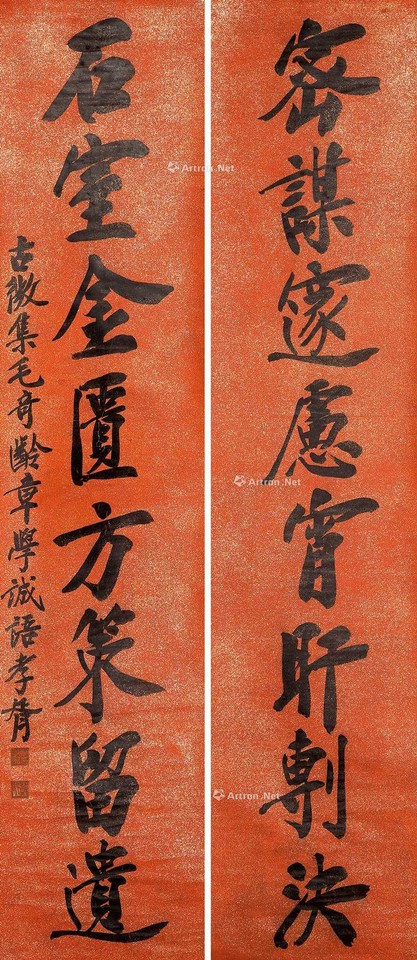 密謀邃慮宵旰剸決
石室金匱方策留遺
古微集毛奇齡章學誠語孝胥
Artron.Net
Artron.Net
Artron.Net